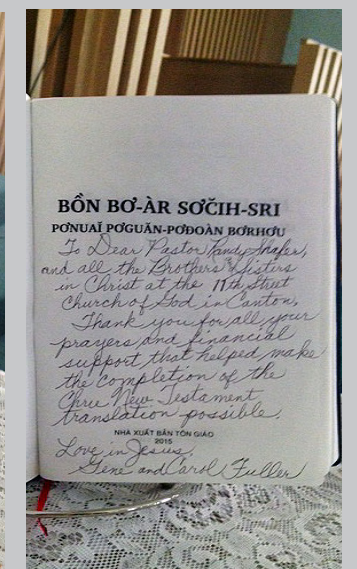 BỒN BƠ-ÀR SƠČIH-SRI
PƠNUAĬ PƠGUĂN-PƠĐOÀN BƠRHƠU
To Dear Pastor Randy Shafer,
and all the Brothers & Sisters
in Christ at the 11th Street
Church of God in Canton,
Thank you for all your
prayers and financial
support that helped make
the completion of the
Chru New Testament
translation possible.
NHÀ XUẤT BẢN TÔN GIÁO
2015
Love in Jesus,
Gene and Carol Fuller